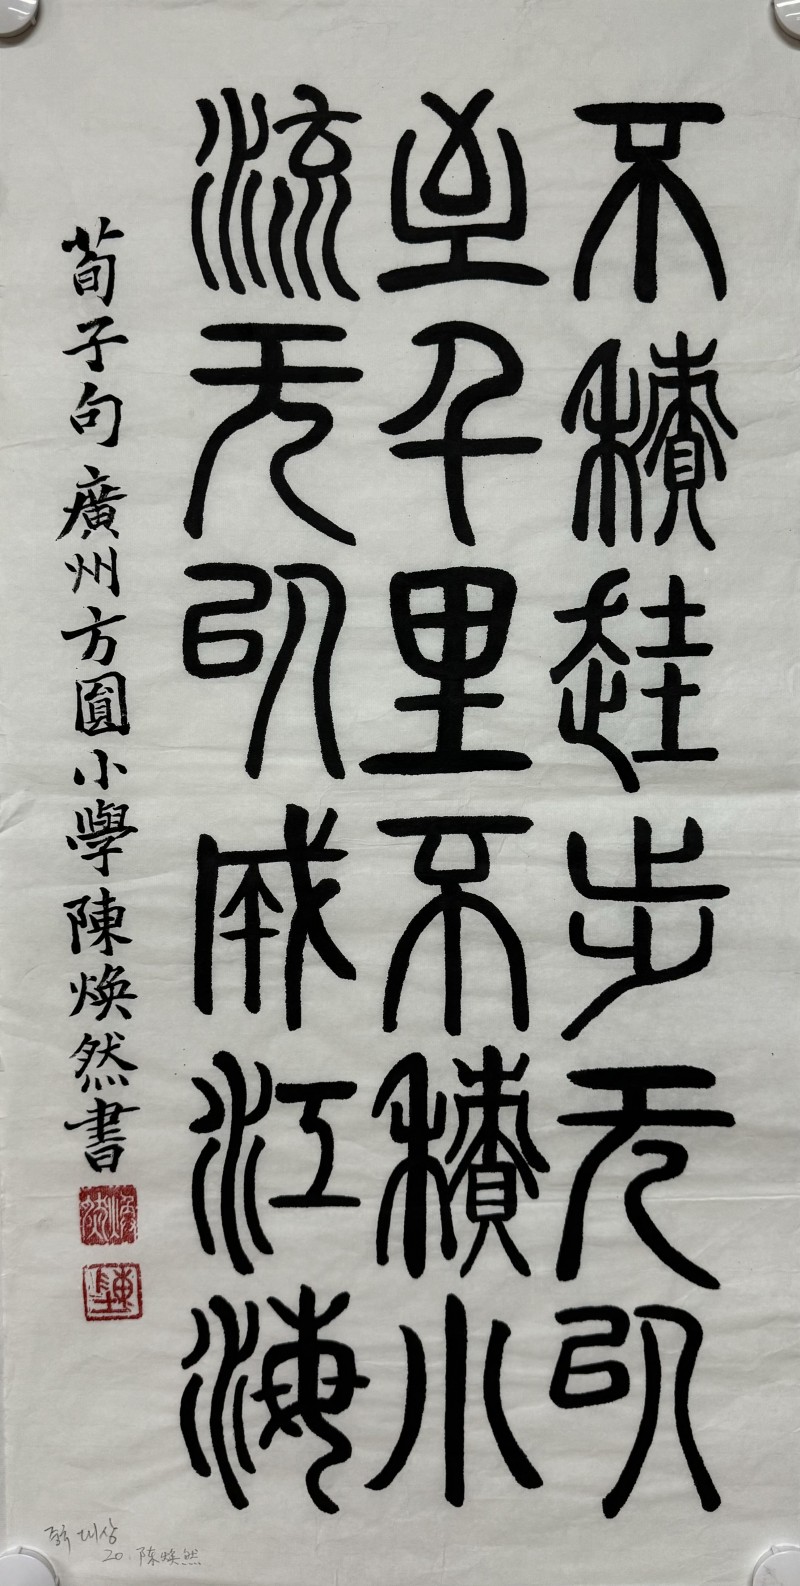 不積跬步无以
至千里不積小
流无以成江海
荀子句廣州方圓小學陳煥然書
煥然
陳
대상
20. 陈焕然